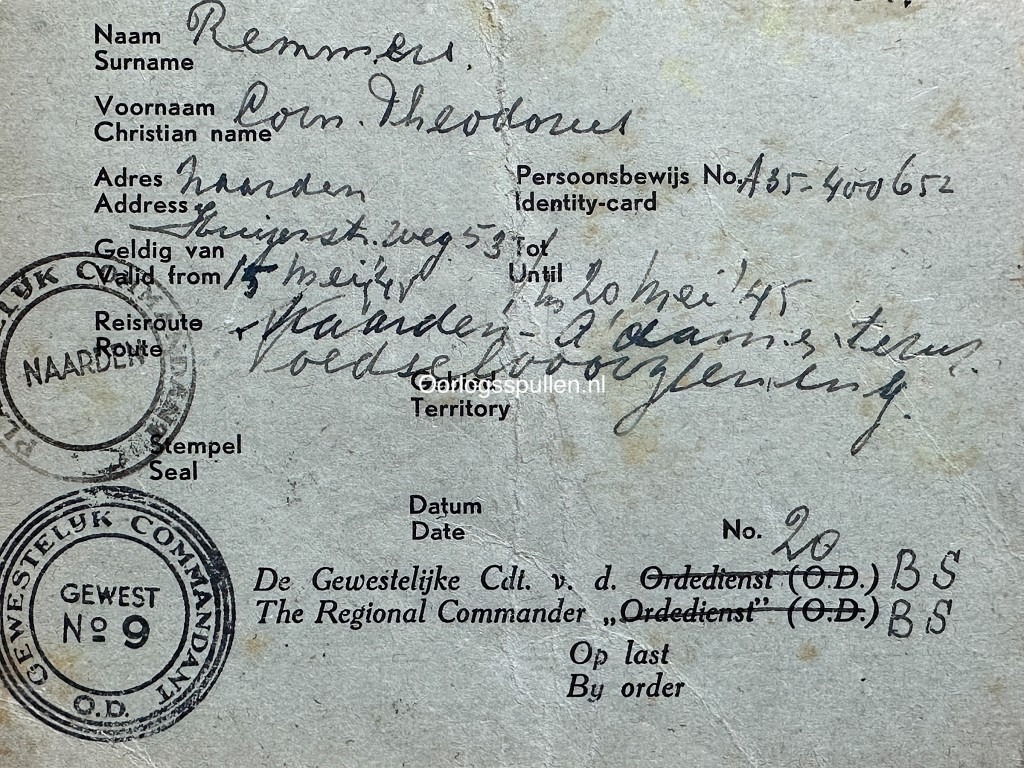 Naam Remmers.
Surname
Voornaam Corn. Theodorus
Christian name
Adres Naarden
Address
Persoonsbewijs No. A35-400652
Identity-card
Huizerstr.weg 53
Geldig van
Valid from 15 Mei '45
Tot
Until 20 Mei '45
Reisroute Naarden - A'dam
Route
voedselvoorziening.
Gebied
Territory
Oorlogsspullen.nl
NAARDEN
Stempel
Seal
Datum
Date
No. 20
De Gewestelijke Cdt. v. d. Ordedienst (O.D.) BS
The Regional Commander „Ordedienst" (O.D.) BS
Op last
By order
GEWESTELIJK COMMANDANT
GEWEST
No 9
O.D.